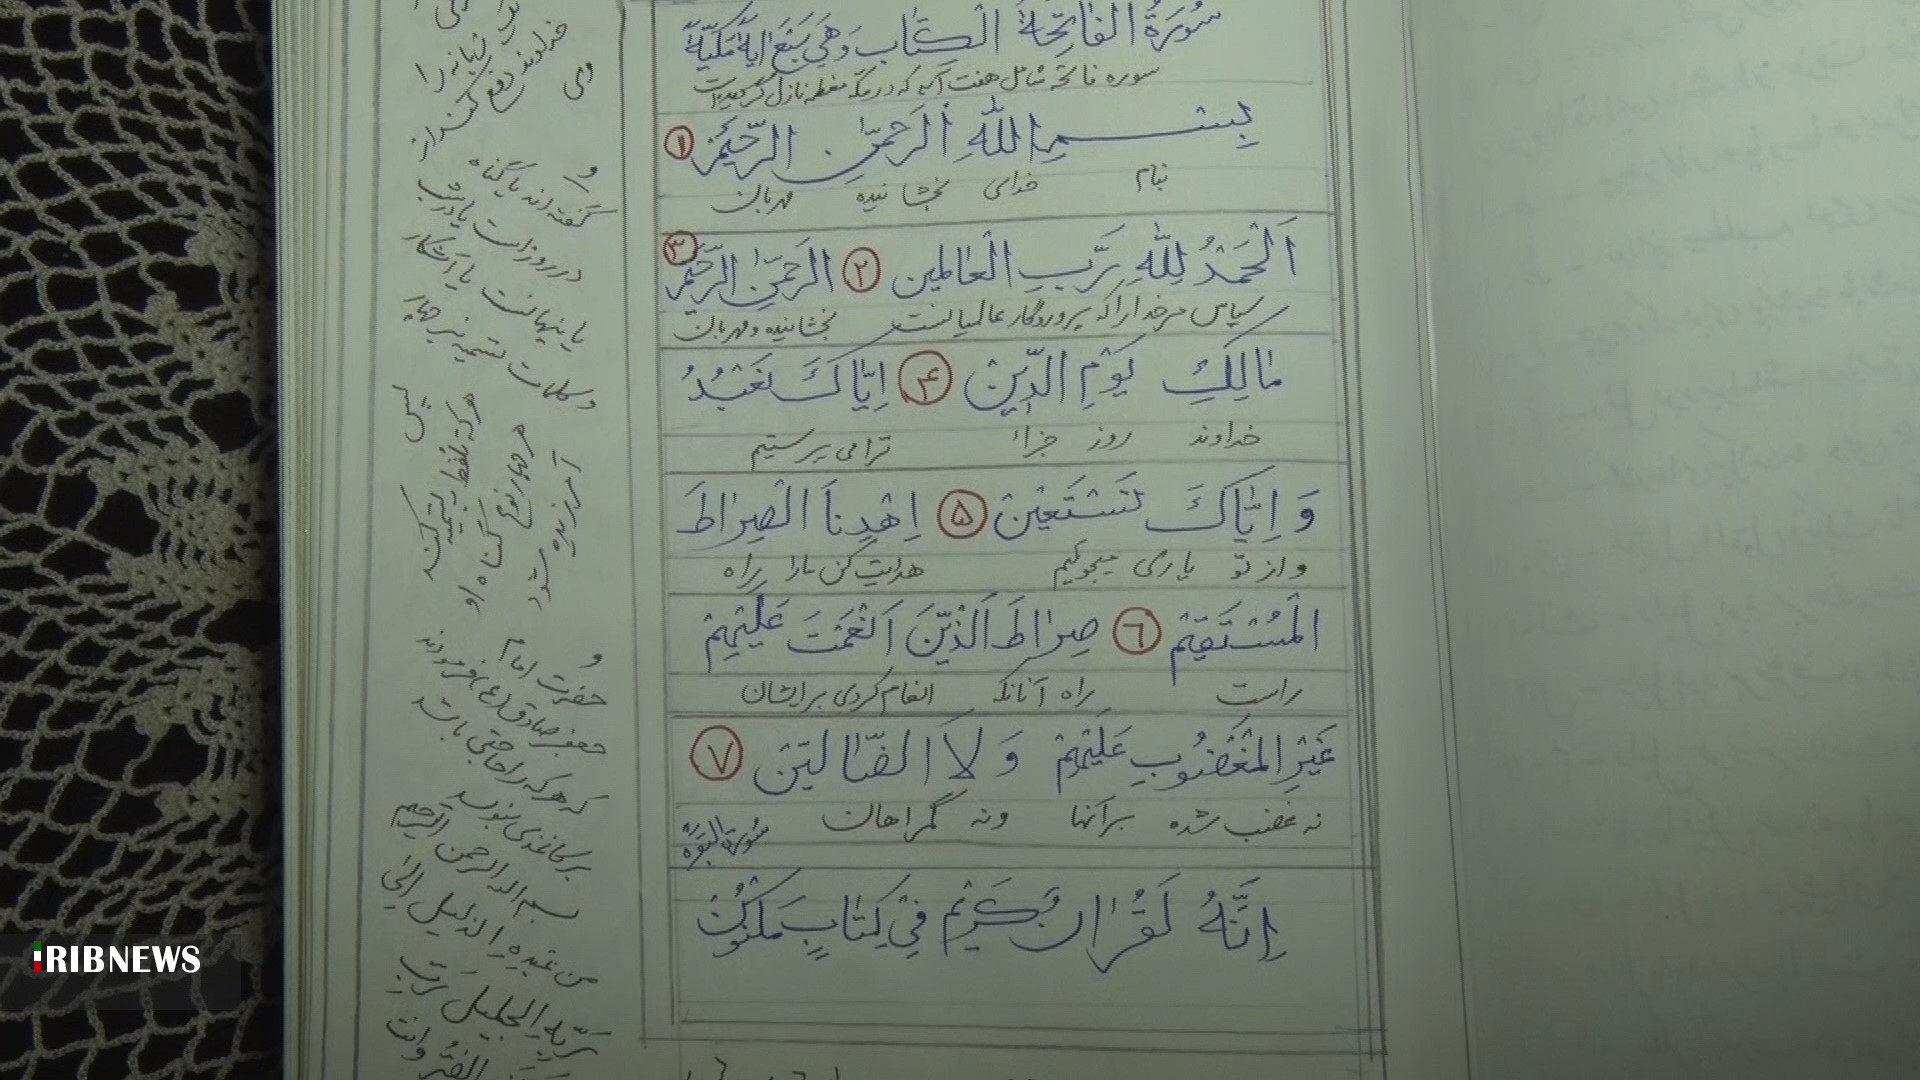 سُورَةُ الْفٰاتِحَةُ الْكِتٰابِ وَهِيَ سَبْعُ ايٰةً مَكِّيَّةً
سوره فاتحه شامل هفت آیه که در مکه معظمه نازل گردیده است
بِسْمِ اللّٰهِ اَلرَّحْمٰنِ الرَّحِيْمِ ۱
بنام خدای بخشاینده مهربان
اَلْحَمْدُ لِلّٰهِ رَبِّ الْعٰالَمِين ۲ الرَّحْمٰنِ الرَّحِيْمِ ۳
سپاس مرخدا را که پروردگار عالمیانست بخشاینده و مهربان
مٰالِكِ يَوْمِ الدِّيْنِ ۴ اِيّٰاكَ نَعْبُدُ
خداوند روز جزاء ترا می پرستیم
وَ اِيّٰاكَ نَسْتَعْيٖنْ ۵ اِهْدِنَا الْصِرٰاطَ
و از تو یاری میجوئیم هدایت کن ما را راه
الْمُسْتَقيٖمْ ٦ صِرٰاطَ الَّذيٖنَ اَنْعَمْتَ عَلَيْهِمْ
راست راه آنانکه انعام کردی برایشان
غَيْرِ الْمَغْضُوبِ عَلَيْهِمْ وَ لاَ الضّٰاليّٖنْ ۷
نه غضب شده برآنها ونه گمراهان
سُورَة البَقَرَة
اِنَّهُ لَقُرْاٰنٌ كَرِيْم فِيْ كِتٰابٍ مَكْنُوْنْ
خداوند دفع کند از
وی
و
گفته اند یا گناه
در روز است یا در شب
یا پنهانست یا آشکار
و کلمات تسمیه نیز چهار
پس
هرکه تلفظ بتسمیه کند
هر چهار نوع گناه او
آمرزیده شود
و
حضرت امام
جعفر صادق (ع) فرمودند
که هرکه را حاجتی باشد
بر کاغذی بنویسد
بسم الله الرحمن الرحیم
من عَبْدِهِ الذلیل اِلیٰ
رَبِّهِ الجلیل رَبِّ
IRIBNEWS